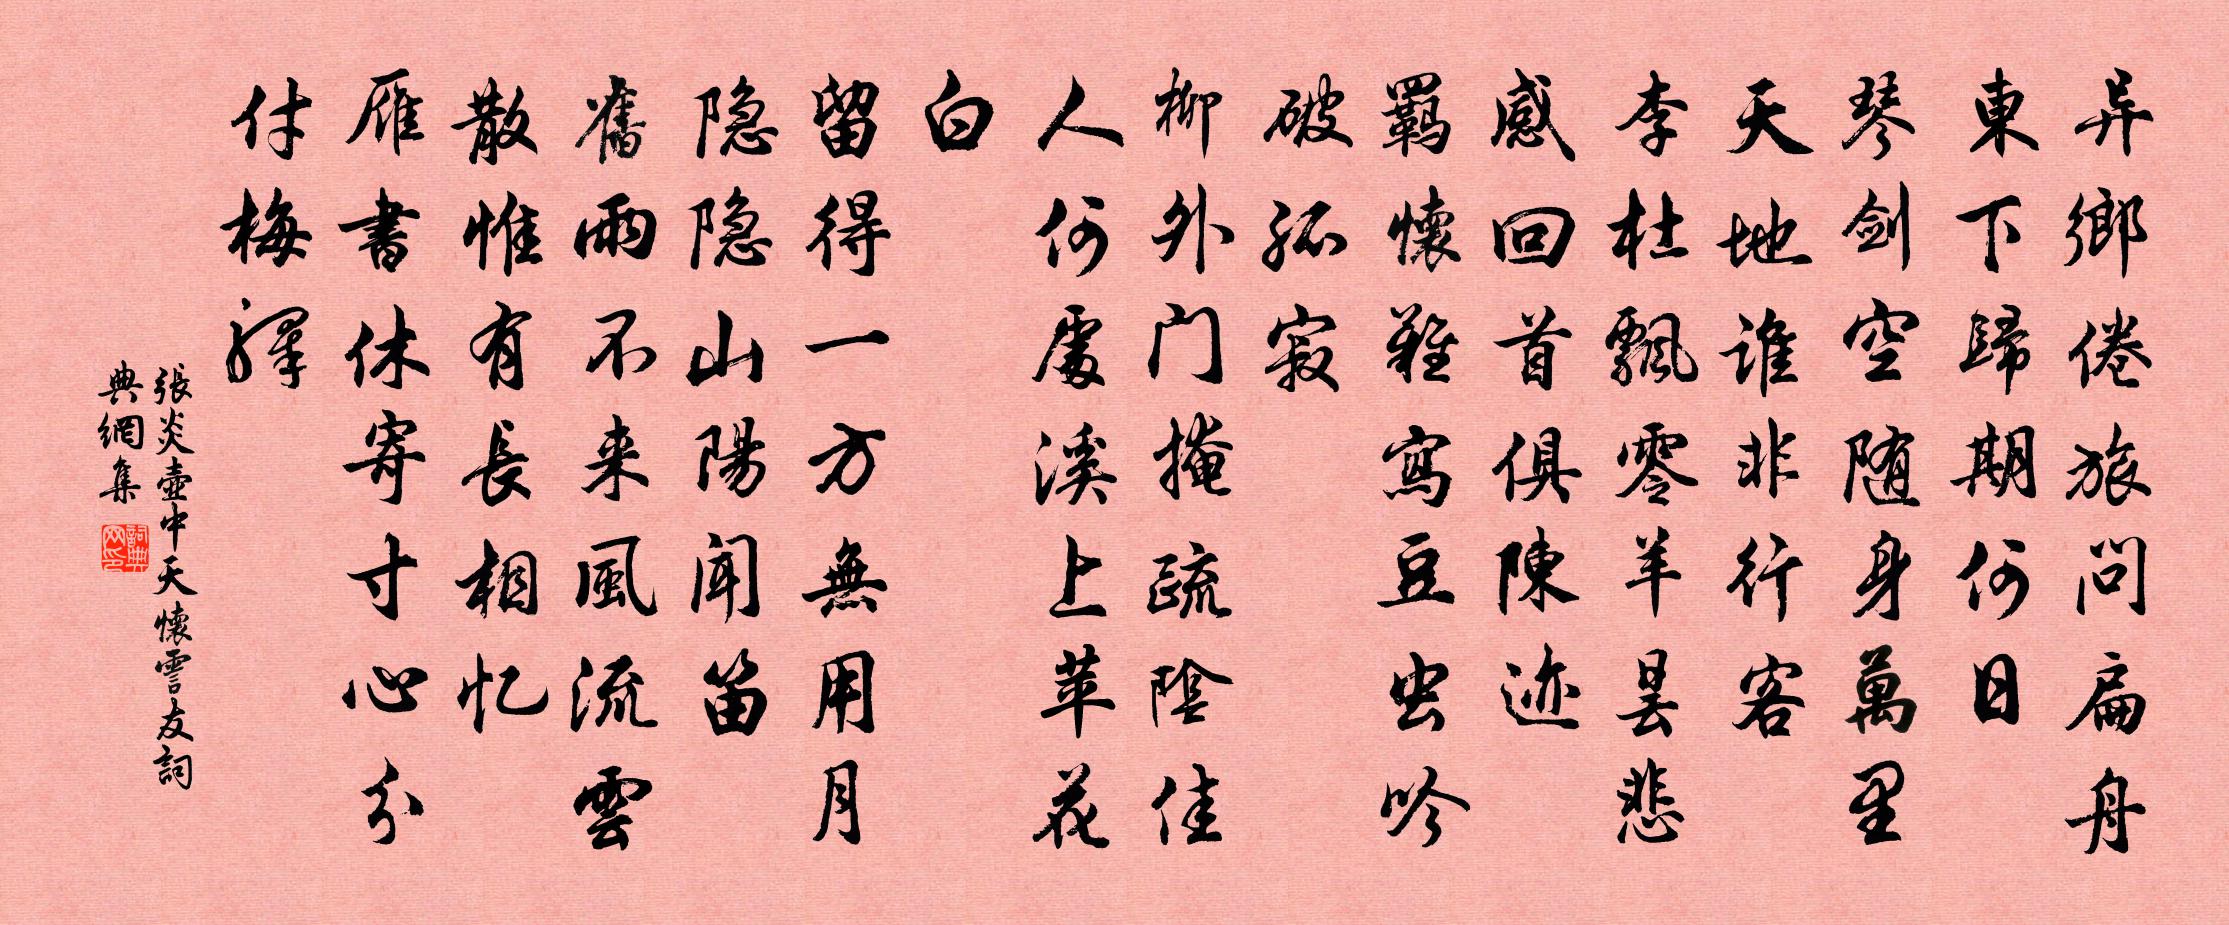 异鄉倦旅問扁舟
東下歸期何日
琴劍空随身萬里
天地誰非行客
李杜飄零羊曇悲
感回首俱陳迹
羈懷難寫豆虫吟
破孤寂
柳外门掩疏陰佳
人何處溪上苹花
白
留得一方無用月
隐隐山陽聞笛
舊雨不来風流雲
散惟有長相忆
雁書休寄寸心分
付梅驛
張炎壺中天懷霅友詞
典網集
詞典
网印